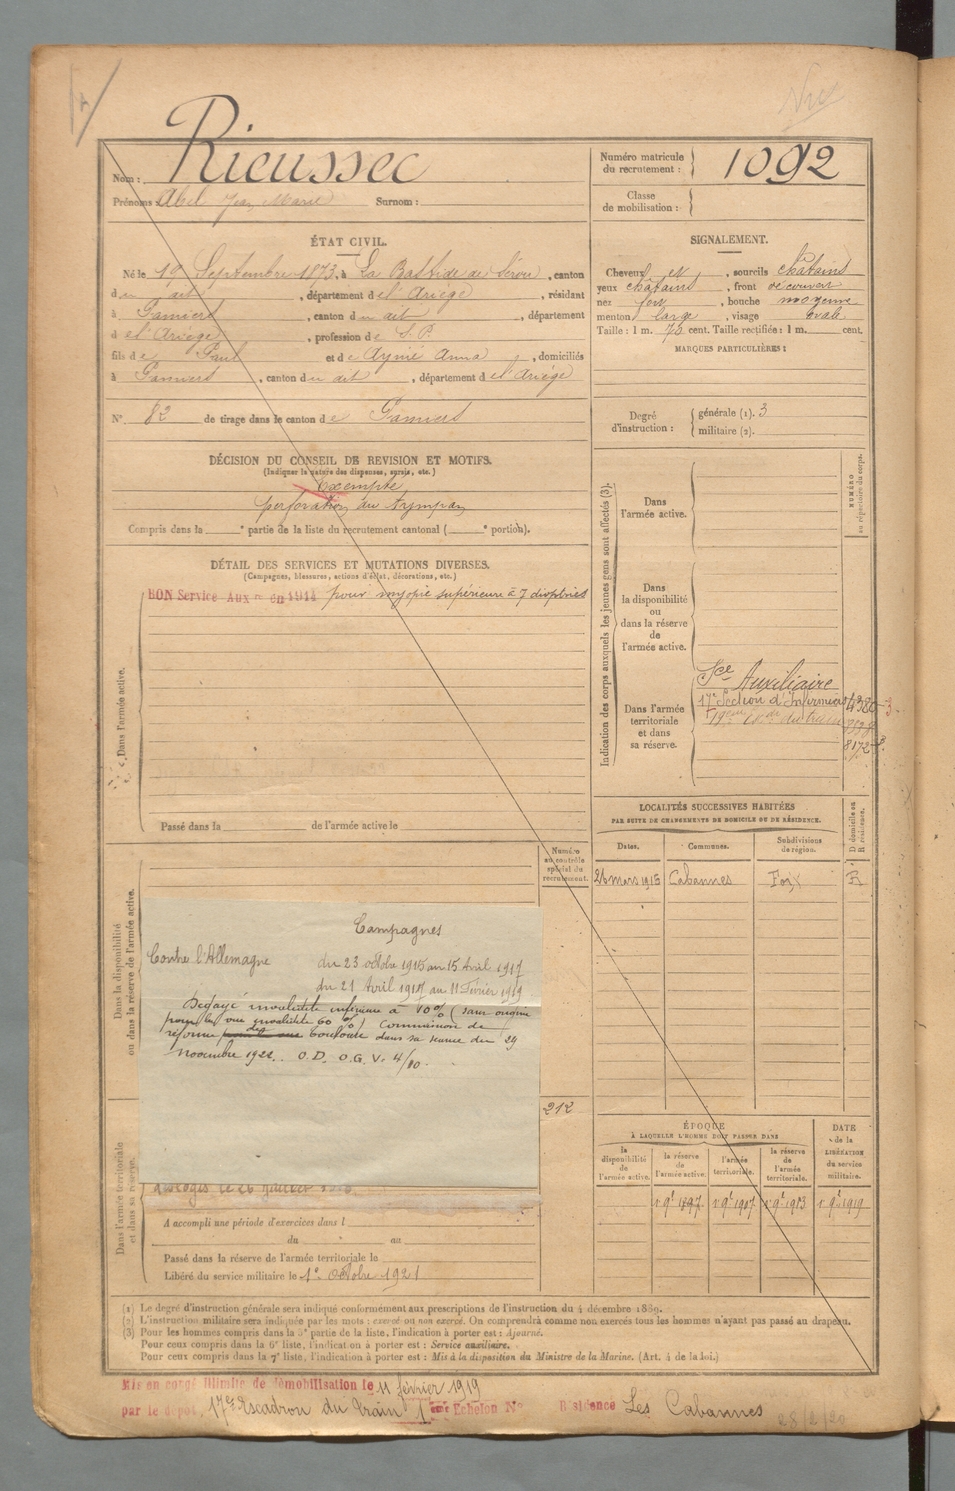 Rieussec
Nom :
Prénoms Abel Jean Marie Surnom :
Numéro matricule du recrutement : 1092
Classe de mobilisation :
ÉTAT CIVIL.
Né le 19 Septembre 1873, à La Bastide de Sérou, canton
du dit, département de l'Ariège, résidant
à Pamiers, canton du dit, département
de l'Ariège, profession de S. P.
fils de Paul et de Aynié Anna, domiciliés
à Pamiers, canton du dit, département de l'Ariège
N° 82 de tirage dans le canton de Pamiers
SIGNALEMENT.
Cheveux et, sourcils châtains
yeux châtains, front découvert
nez fort, bouche moyenne
menton large, visage ovale
Taille : 1 m. 70 cent. Taille rectifiée : 1 m. cent.
MARQUES PARTICULIÈRES :
Degré d'instruction : générale (1). 3
militaire (2).
DÉCISION DU CONSEIL DE REVISION ET MOTIFS.
(Indiquer la nature des dispenses, sursis, etc.)
Exempté
perforation du tympan
Compris dans la ° partie de la liste du recrutement cantonal ( ° portion).
DÉTAIL DES SERVICES ET MUTATIONS DIVERSES.
(Campagnes, blessures, actions d'éclat, décorations, etc.)
Dans l'armée active.
BON Service Aux re en 1914 pour myopie supérieure à 7 dioptries
Passé dans la de l'armée active le
Indication des corps auxquels les jeunes gens sont affectés (3).
NUMÉRO au répertoire du corps.
Dans l'armée active.
Dans la disponibilité ou dans la réserve de l'armée active.
Dans l'armée territoriale et dans sa réserve.
Sce Auxiliaire
17e Section d'Infirmiers
8172
LOCALITÉS SUCCESSIVES HABITÉES
PAR SUITE DE CHANGEMENTS DE DOMICILE OU DE RÉSIDENCE.
Dates. Communes. Subdivisions de région. D domicile ou R résidence.
26 mars 1916 Cabannes Foix R
Dans la disponibilité ou dans la réserve de l'armée active.
Numéro au contrôle spécial du recrutement.
Campagnes
Contre l'Allemagne du 23 octobre 1915 au 15 Avril 1917
du 21 Avril 1917 au 11 Février 1919
Dégagé invalidité inférieure à 10% (sans origine
pour la vue invalidité 60 %) Commission de
réforme de Toulouse dans sa séance du 29
Novembre 1922. O.D. O.G. V. 4/80.
212
Dans l'armée territoriale et dans sa réserve.
A accompli une période d'exercices dans l
du au
Passé dans la réserve de l'armée territoriale le
Libéré du service militaire le 1er Octobre 1921
ÉPOQUE
À LAQUELLE L'HOMME DOIT PASSER DANS
la disponibilité de l'armée active. la réserve de l'armée active. l'armée territoriale. la réserve de l'armée territoriale.
DATE de la LIBÉRATION du service militaire.
1897 1907 1913 1919
(1) Le degré d'instruction générale sera indiqué conformément aux prescriptions de l'instruction du 4 décembre 1889.
(2) L'instruction militaire sera indiquée par les mots : exercé ou non exercé. On comprendra comme non exercés tous les hommes n'ayant pas passé au drapeau.
(3) Pour les hommes compris dans la 5e partie de la liste, l'indication à porter est : Ajourné.
Pour ceux compris dans la 6e liste, l'indication à porter est : Service auxiliaire.
Pour ceux compris dans la 7e liste, l'indication à porter est : Mis à la disposition du Ministre de la Marine. (Art. 4 de la loi.)
Mis en congé illimité de démobilisation le 11 février 1919
par le dépôt 17e Escadron du Train 1 ème Echelon N° Résidence Les Cabannes
28/2/20